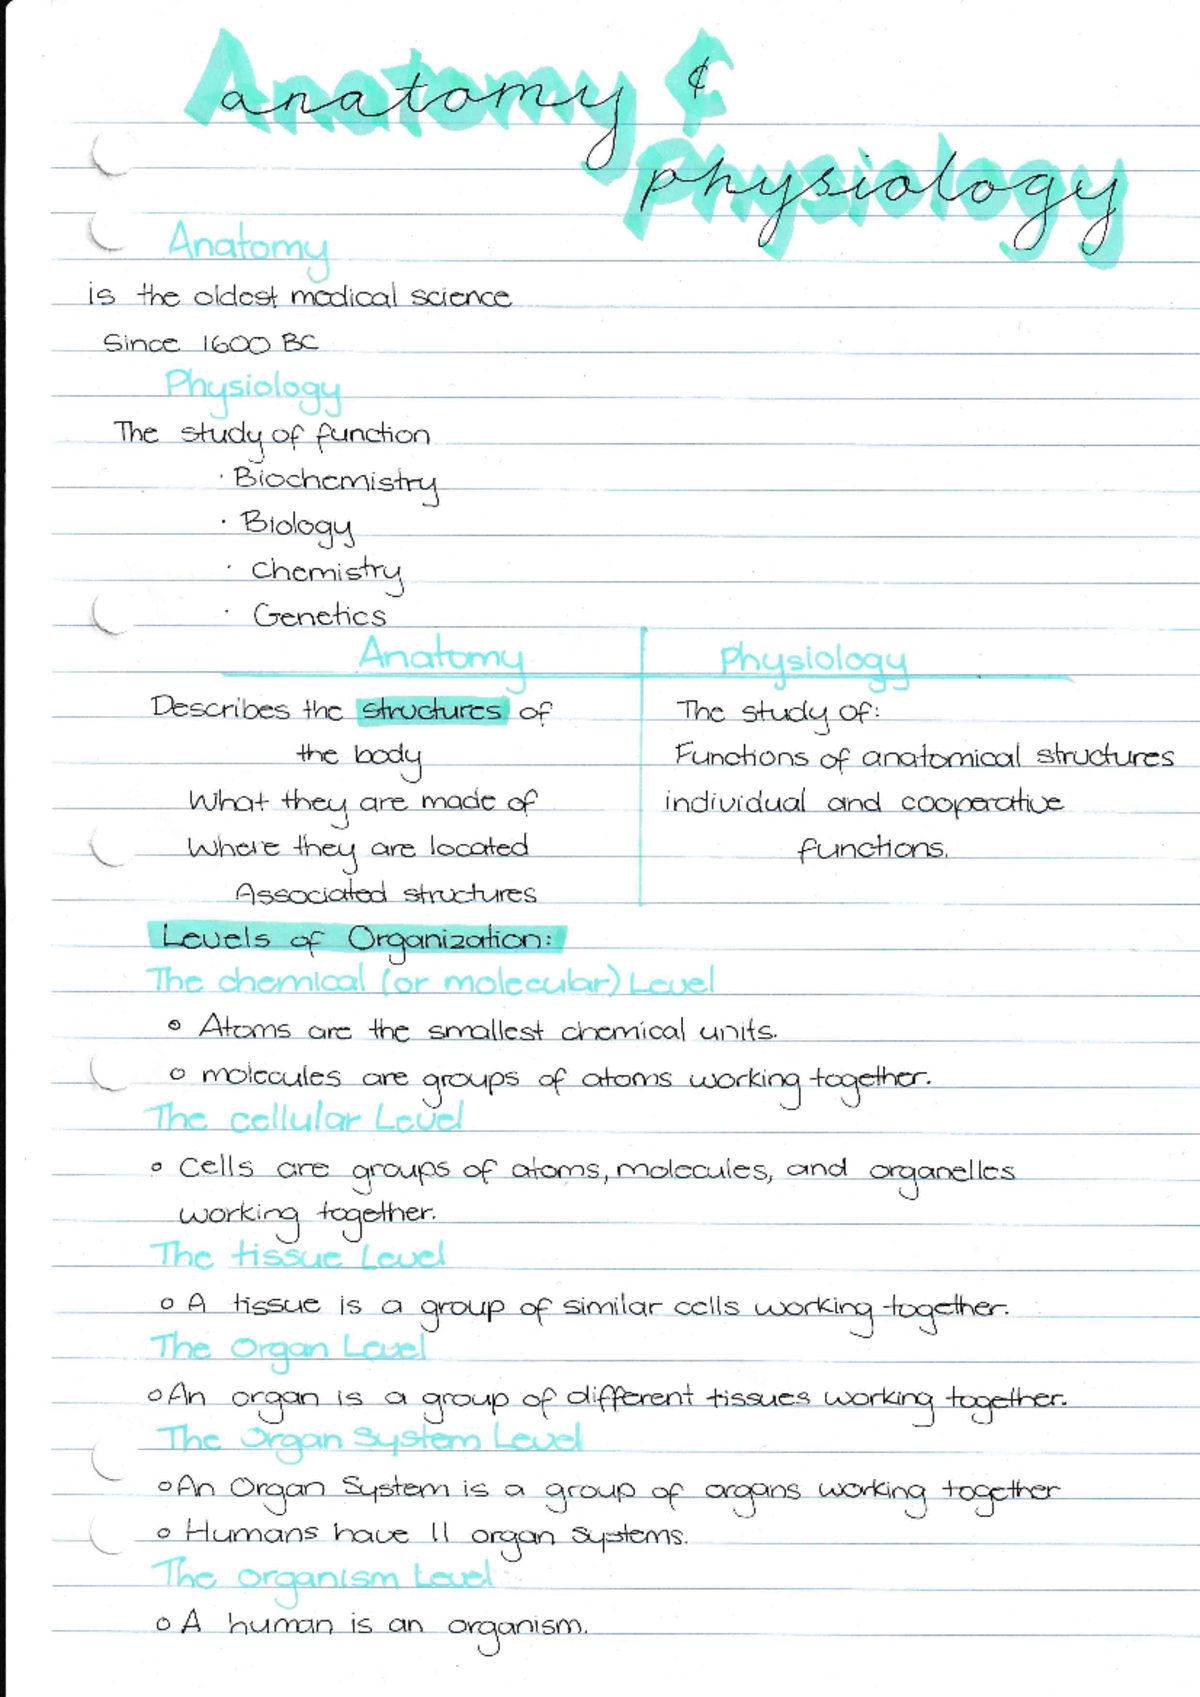 anatomy &
physiology
Anatomy
is the oldest medical science
Since 1600 BC
Physiology
The study of function
· Biochemistry
· Biology
· Chemistry
· Genetics
Anatomy
Describes the structures of
the body
What they are made of
Where they are located
Associated structures
Physiology
The study of:
Functions of anatomical structures
individual and cooperative
functions.
Levels of Organization:
The chemical (or molecular) Level
o Atoms are the smallest chemical units.
o molecules are groups of atoms working together.
The cellular Level
o Cells are groups of atoms, molecules, and organelles
working together.
The tissue Level
o A tissue is a group of similar cells working together.
The Organ Level
o An organ is a group of different tissues working together.
The Organ System Level
o An Organ System is a group of organs working together
o Humans have 11 organ systems.
The organism Level
o A human is an organism.